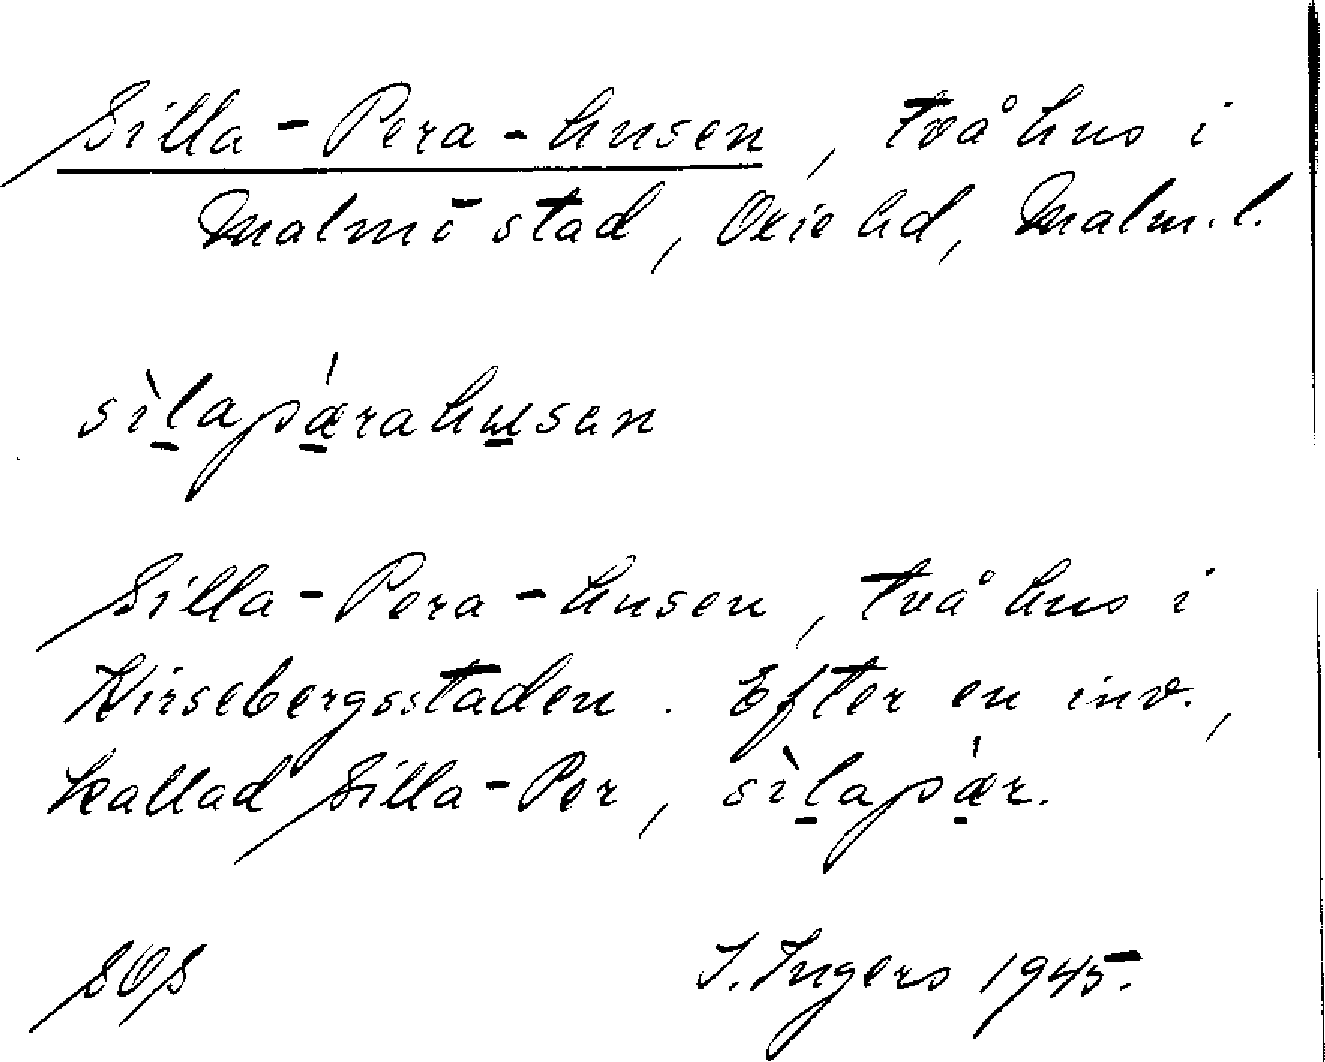 Silla-Pera-husen, två hus i
Malmö stad, Oxie hd, Malm. l.
sìlapǽrahusen
Silla-Pera-husen, två hus i
Kirsebergsstaden. Efter en inv.,
kallad Silla-Per, sìlapǽr.
SOS I. Ingers 1945.